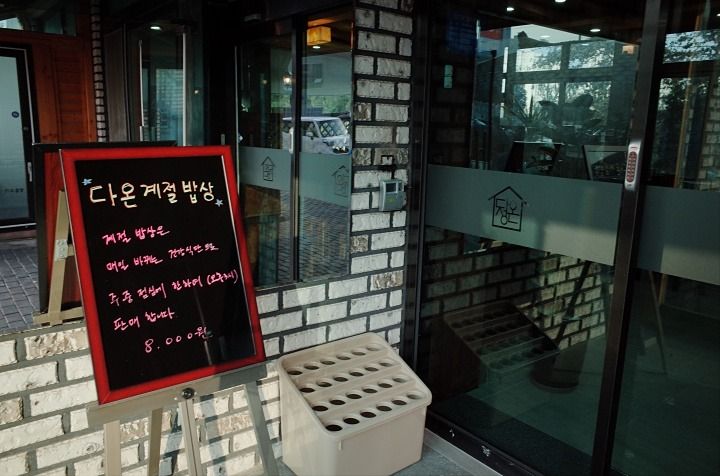 다온계절밥상
계절 밥상은
매일 바뀌는 건강식단으로
주중 점심에 한하여
판매 합니다.
8.000원